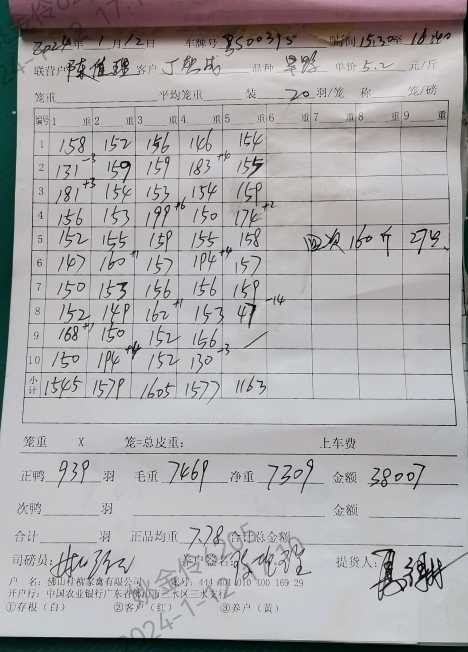 2024年 1月12日 车牌号 时间 15:30至
联营户 客户 品种 单价 5.2 元/斤
笼重 平均笼重 装 20 羽/笼 称 笼/磅
编号 1 重 2 重 3 重 4 重 5 重 6 重 7 重 8 重 9 重
1 158 152 156 146 154
2 131 -3 159 159 183 +4 155
3 181 +3 154 153 154 159
4 156 153 199 +6 150 174 +2
5 152 155 159 155 158 四次 160斤 27只
6 147 160 +1 157 194 +4 157
7 150 153 156 156 159
8 152 149 162 +1 153 47 -14
9 168 +1 150 152 156
10 150 194 +4 152 130 -3
小计 1545 1579 1605 1577 1163
笼重 X 笼=总皮重: 上车费
正鸭 939 羽 毛重 7469 净重 7309 金额 38007
次鸭 羽 金额
合计 羽 正品均重 7.78 合计总金额
司磅员: 客户签名: 提货人:
开户行: 中国农业银行广东省佛山市三水区三水支行
①存根(白) ②客户(红) ③养户(黄)